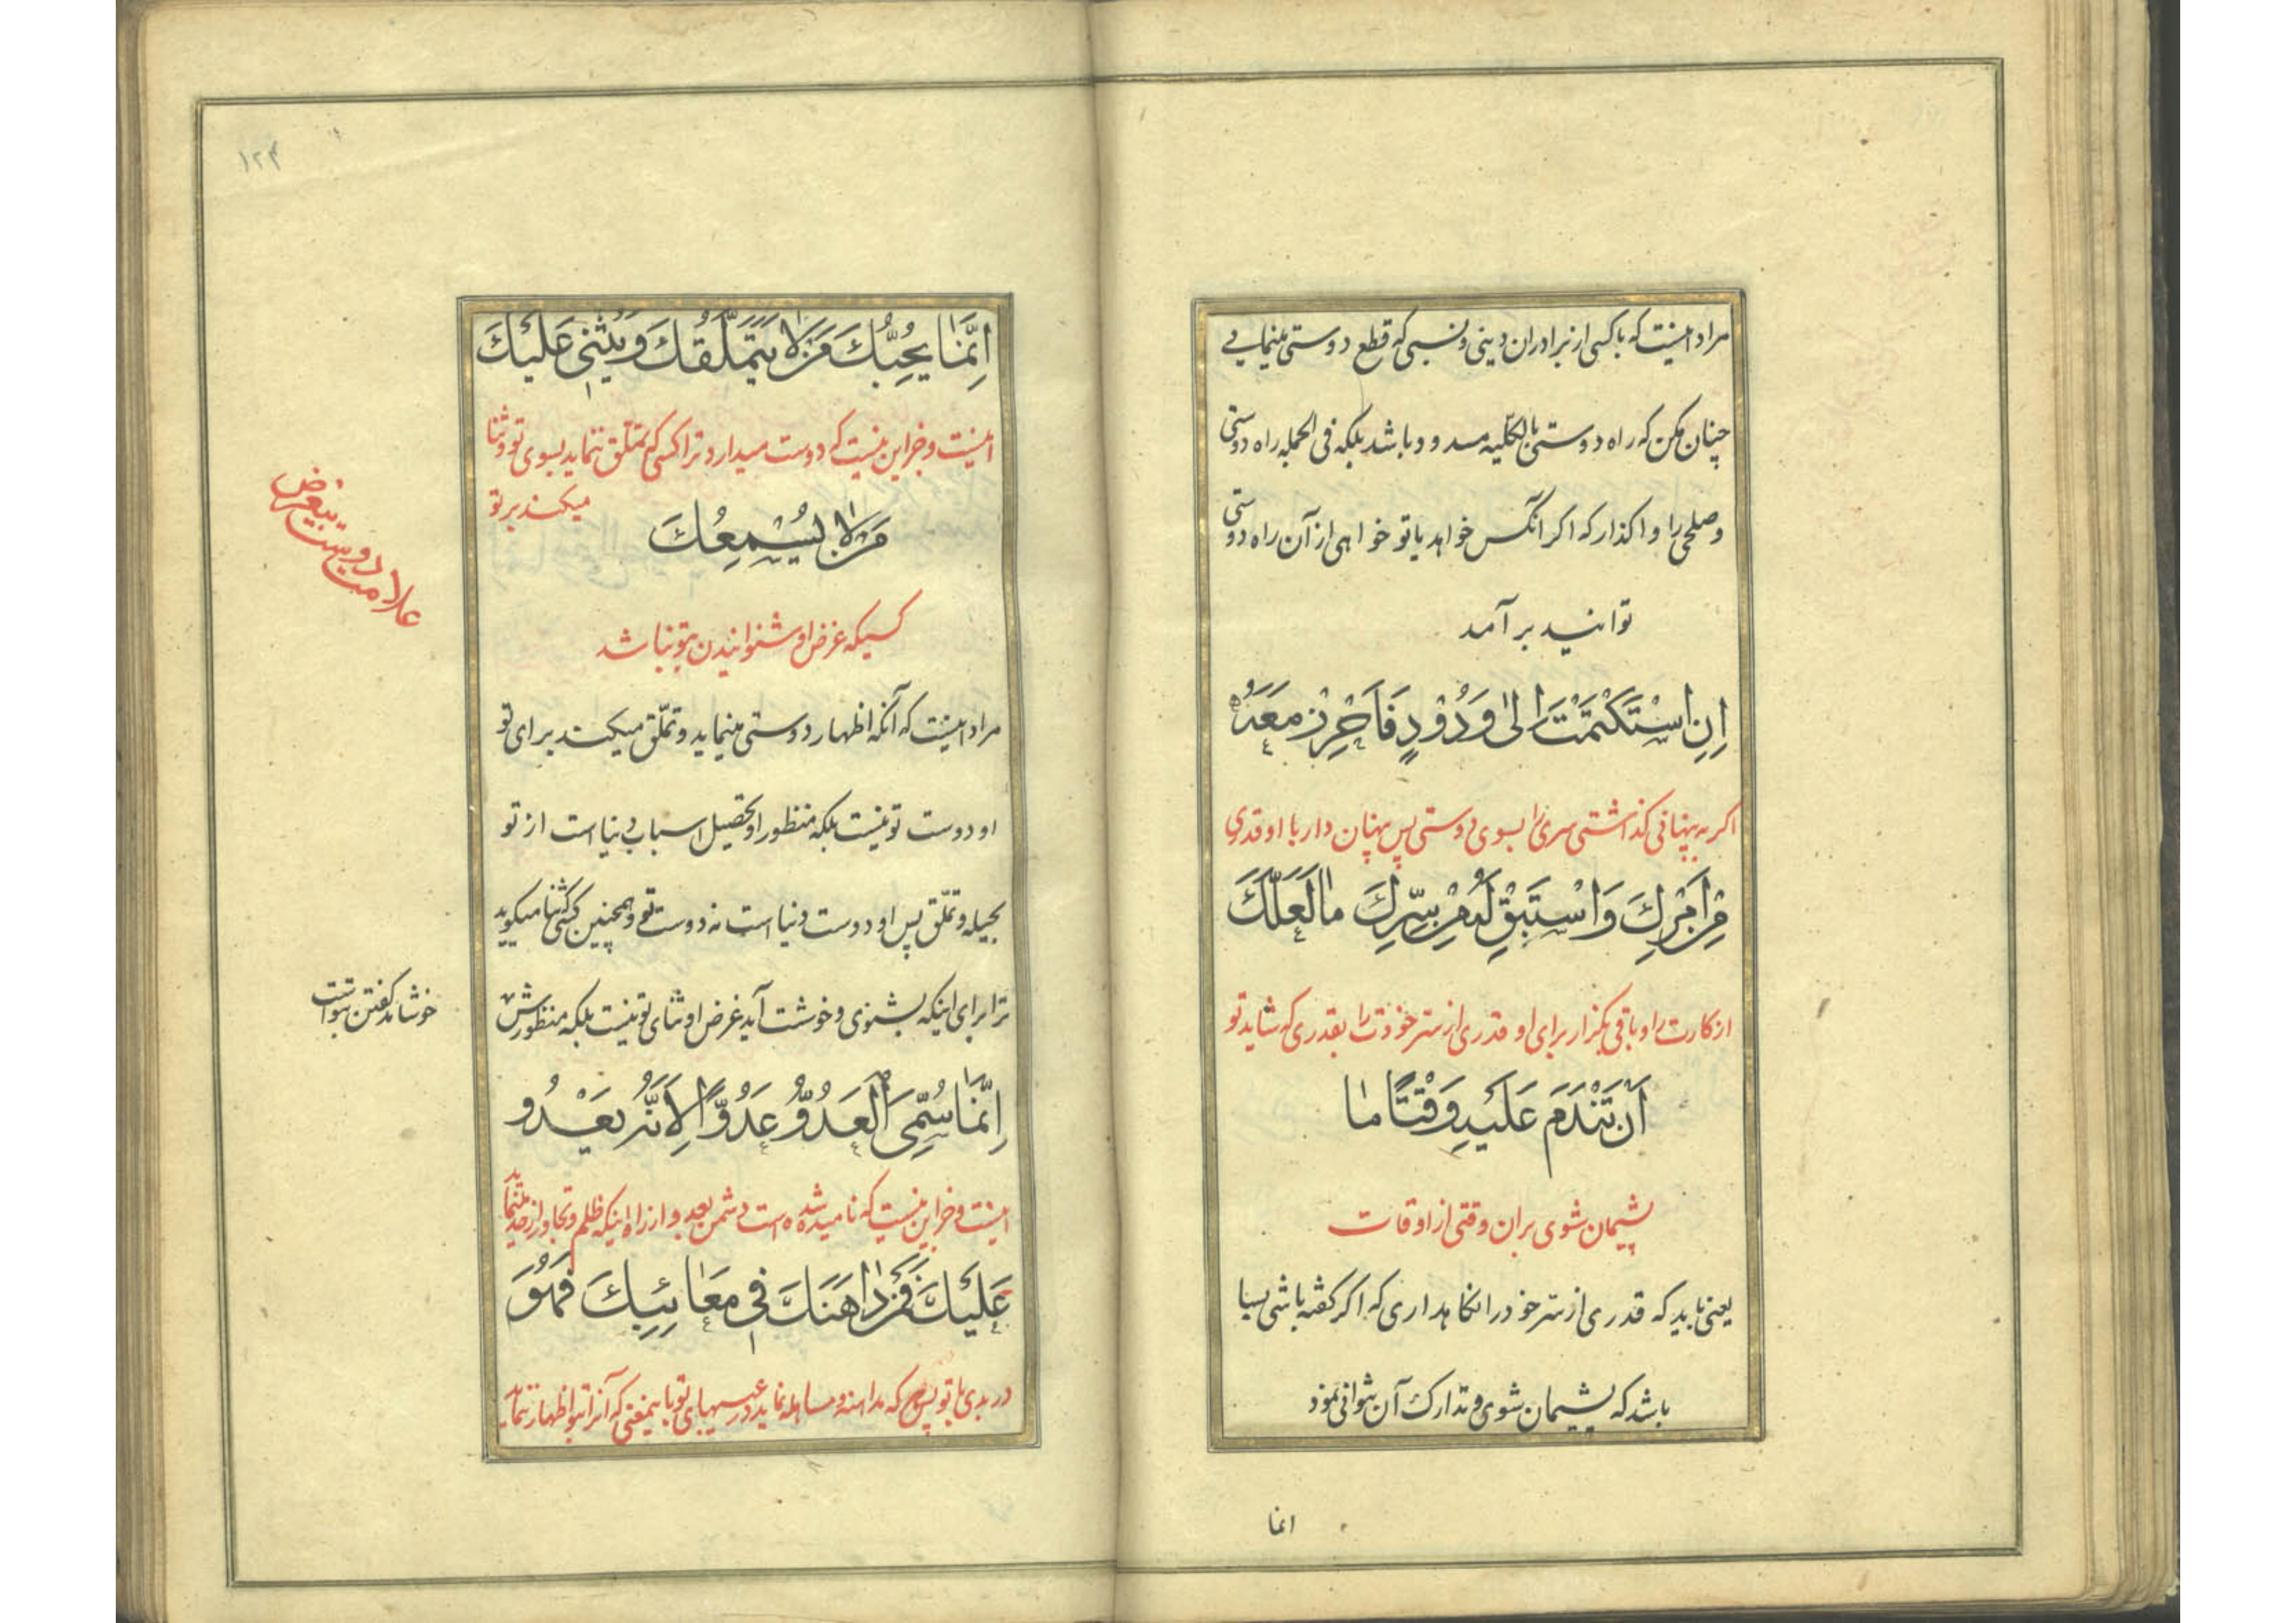 مراد اینست که با کسی از برادران دینی و نسبی که قطع دوستی مینمایی
چنان مکن که راه دوستی بالکلیه مسدود باشد بلکه فی الجمله راه دوستی
و صلحی را واکذار که اکر آنکس خواهد یا تو خواهی از آن راه دوستی
توانید بر آمد
اِنِ اسْتَكْتَمْتَ اِلیٰ وَدُوْدٍ فَاَحْرِزْ مَعَهُ
اکر به پنهانی کذاشتی سری را بسوی دوستی پس پنهان دار با او قدری
مِنْ اَمْرِكَ وَاسْتَبِقْ لَهُ مِنْ سِرِّكَ مٰا لَعَلَّكَ
از کارت را و باقی بکزار برای او قدری از سر خودت را بقدری که شاید تو
اَنْ تَنْدَمَ عَلَيْهِ وَقْتًا مٰا
پشیمان شوی بران وقتی از اوقات
یعنی باید که قدری از سر خود را نکاهداری که اکر کفته باشی بسا
باشد که پشیمان شوی و تدارک آن نتوانی نمود
انما
۱۲۴
اِنَّمٰا يُحِبُّكَ مَنْ لٰا يَتَمَلَّقُكَ وَيُثْنِي عَلَيْكَ
اینست و جز این نیست که دوست میدارد ترا کسی که تملق ننماید بسوی تو و ثنا
میکند بر تو
مَنْ لٰا يُسْمِعُكَ
کسیکه غرض او شنوانیدن بتو نباشد
علامت دوست بیغرض
مراد اینست که آنکه اظهار دوستی مینماید و تملّق میکند برای تو
او دوست تو نیست بلکه منظور او تحصیل اسباب دنیا است از تو
بحیله و تملّق پس او دوست دنیا است نه دوست تو و همچنین کسی ثنا میکوید
ترا برای اینکه بشنوی و خوشت آید غرض او ثنای تو نیست بلکه منظورش
خوشامد کفتن بتو است
اِنَّمٰا سُمِّيَ الْعَدُوُّ عَدُوًّا لِاَنَّهُ يَعْدُو
اینست و جز این نیست که نامیده شده است دشمن بعدو از راه اینکه ظلم و تجاوز از حد مینماید
عَلَيْكَ فَمَنْ دٰاهَنَكَ فِي مَعٰائِبِكَ فَهُوَ
در بدی با تو پس هر که مداهنه و مساهله نماید در عیبهای تو باین معنی که آنرا بتو اظهار ننماید